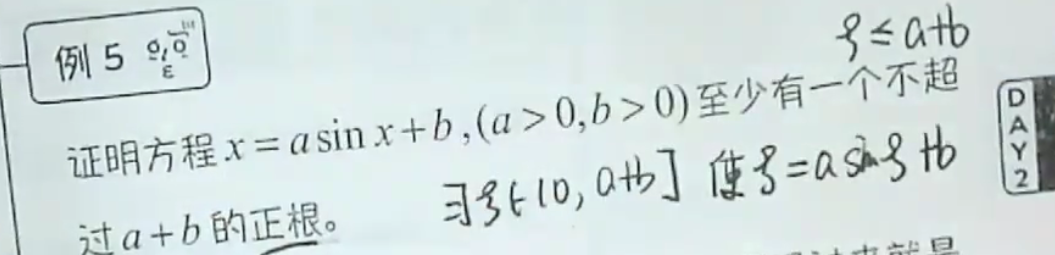 例 5
ξ ≤ a+b
证明方程 x = a sin x + b ,(a > 0,b > 0) 至少有一个不超
过 a + b 的正根。
∃ξ∈(0, a+b] 使ξ=a sinξ+b
DAY2